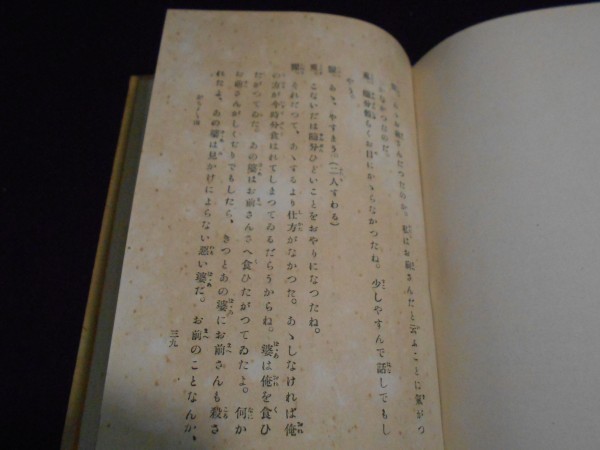 狸。あゝお前さんだつたのか。私はお前さんだと云ふことに氣がつ
かなかつたのだ。
兎。隨分暫らくお目にかゝらなかつたね。少しやすんで話しでもし
やう。
狸。あゝ、やすまう。(二人すわる)
兎。こないだは隨分ひどいことをおやりになつたね。
狸。それだつて、あゝするより仕方がなかつた。あゝしなければ俺
の方が今時分食はれてしまつてゐるだらうからね。婆は俺を食ひ
たがつてゐた。あの婆はお前さんさへ食ひたがつてゐたよ。何か
お前さんがしくじりでもしたら、きつとあの婆にお前さんも殺さ
れたよ。あの婆は見かけによらない惡い婆だ。お前のことなんか、
かちかち山
三九